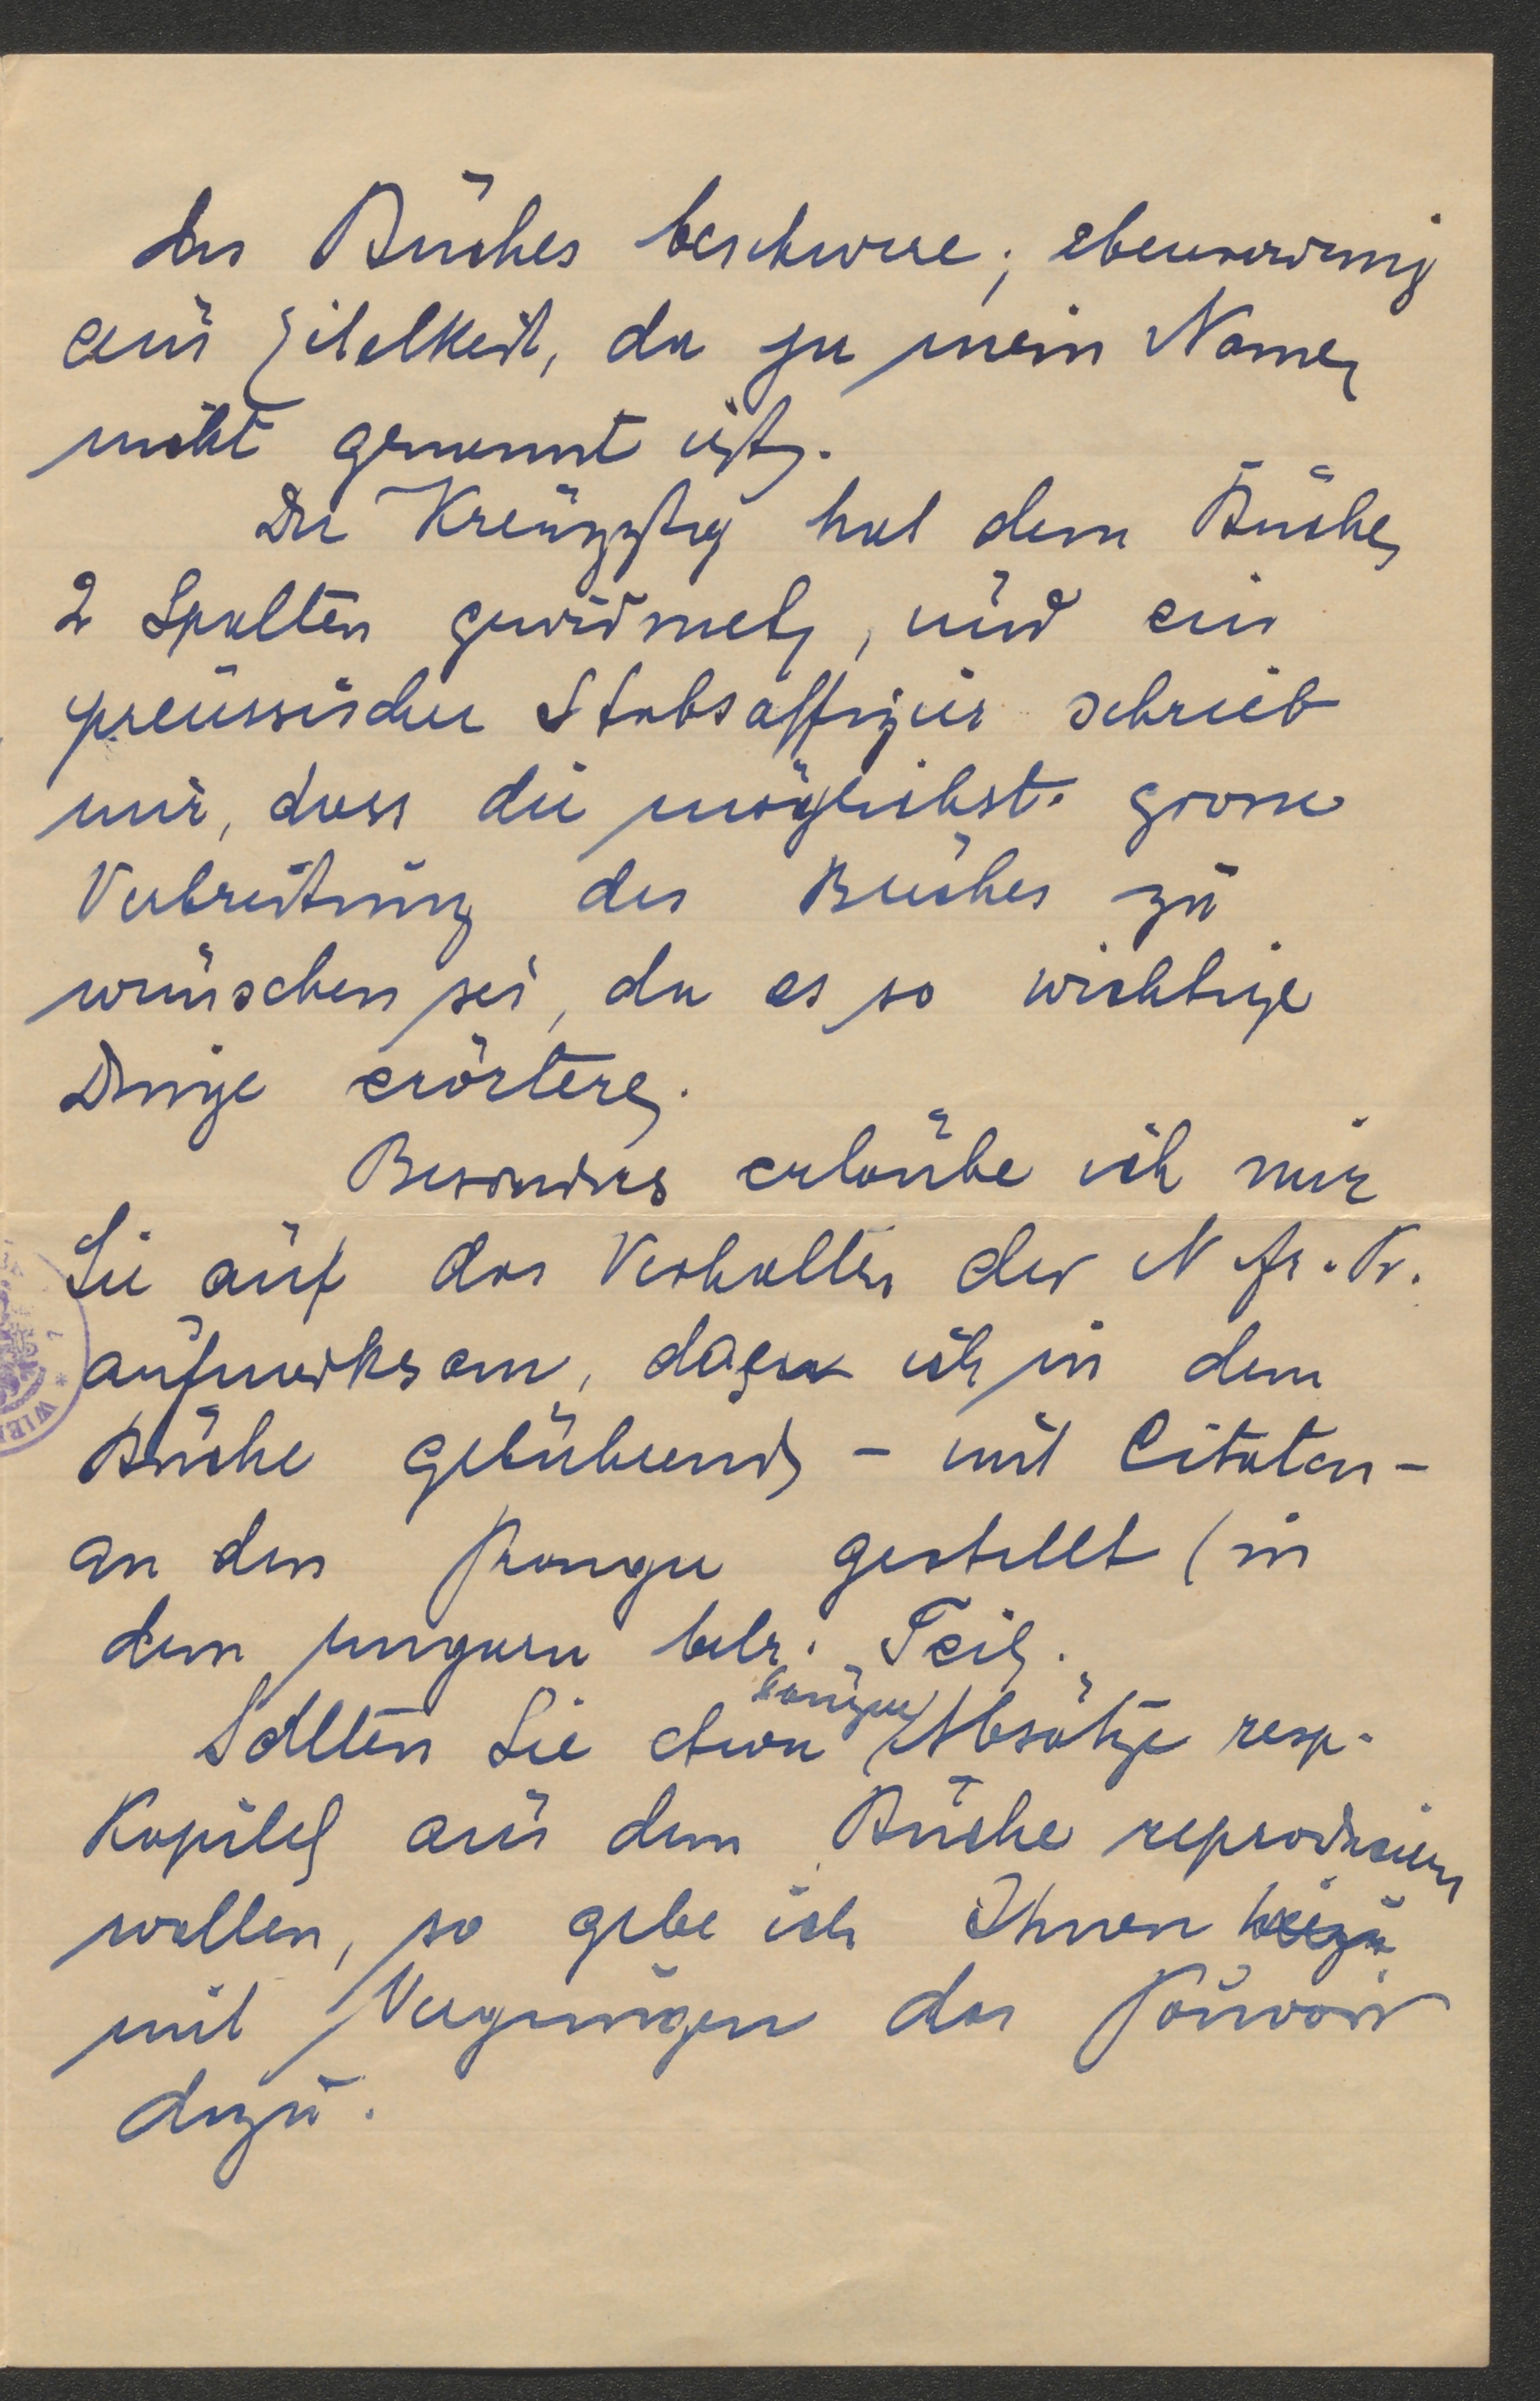 des Buches beschwere; ebensowenig
aus Eitelkeit, da ja mein Name
nicht genannt ist.
Die Kreuzztg hat dem Buche
2 Spalten gewidmet, und ein
preussischer Stabsoffizier schrieb
mir, dass die möglichst grosse
Verbreitung des Buches zu
wünschen sei, da es so wichtige
Dinge erörtere.
Besonders erlaube ich mir
Sie auf das Verhalten der N fr. Pr.
aufmerksam, ich in dem
Buche gebührend - mit Citaten -
an den Pranger gestellt (in
dem Ungarn betr. Teil.
Sollten Sie etwa einige Absätze resp.
Kapitel aus dem Buche reproducieren
wollen, so gebe ich Ihnen hiezu
mit Vergnügen das Pouvoir
dazu.
WIEN